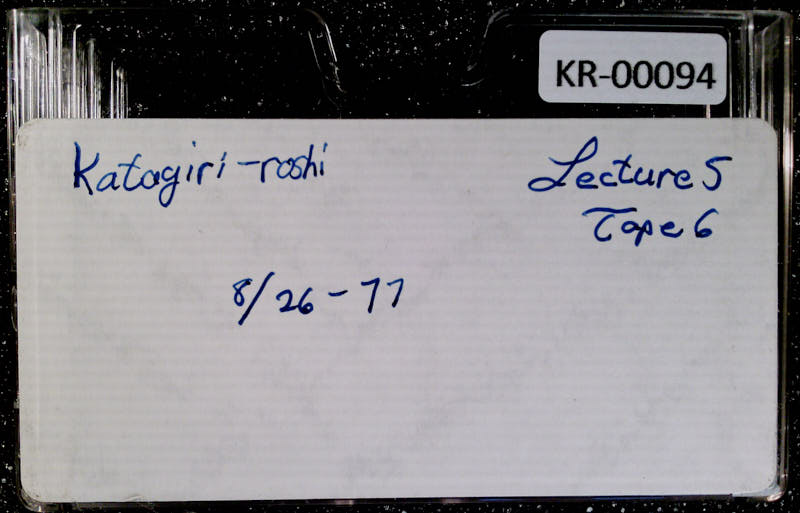 KR-00094
Katagiri-roshi
Lecture 5
Tape 6
8/26-77